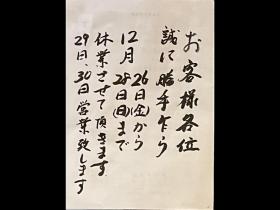 お客様各位
誠に勝手乍ら
12月26日(金)から
28日(日)まで
休業させて頂きます
29日、30日営業致します